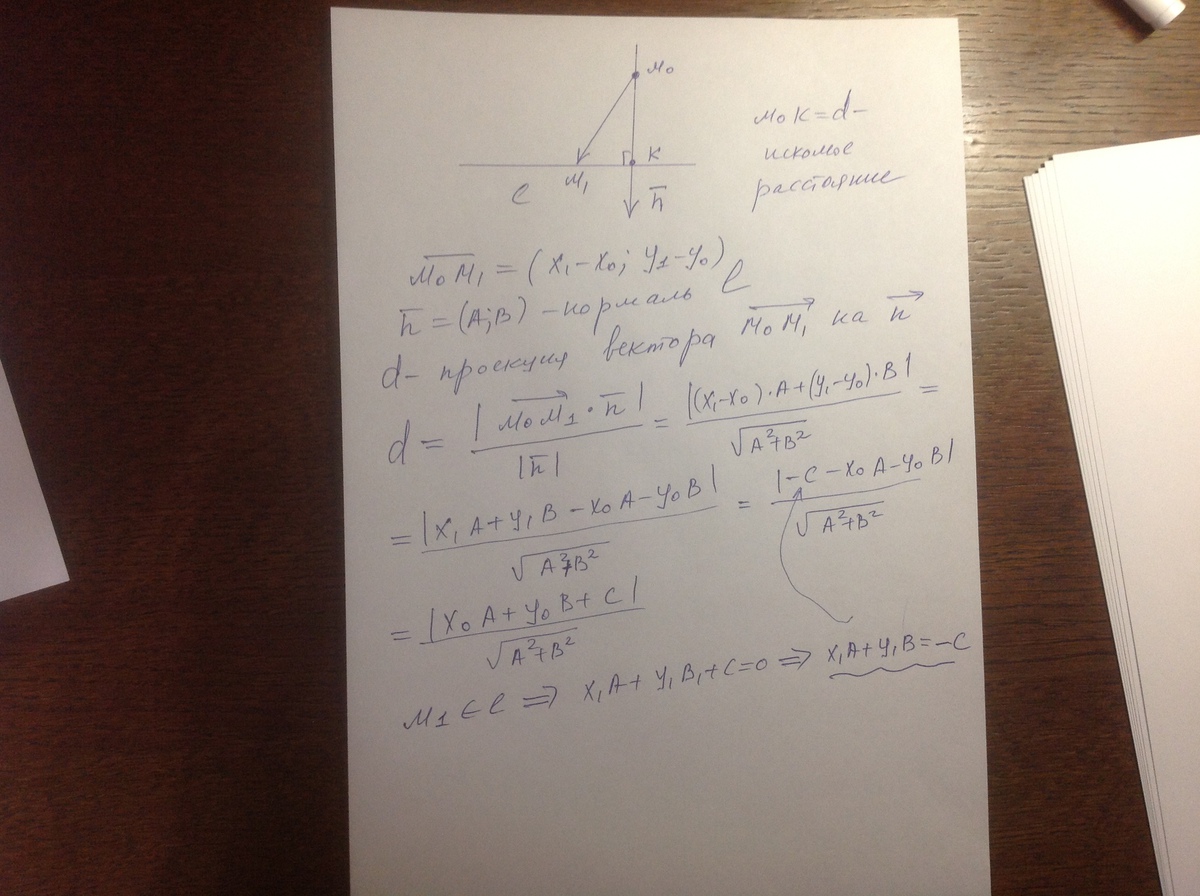 M₀
M₀K = d –
искомое
расстояние
K
M₁
ℓ
n̅
M₀M₁ = (x₁ – x₀; y₁ – y₀)
n̅ = (A; B) – нормаль ℓ
d – проекция вектора M₀M₁ на n
d = |M₀M₁ · n̅| / |n̅| = |(x₁ – x₀) · A + (y₁ – y₀) · B| / √(A² + B²) =
= |x₁A + y₁B – x₀A – y₀B| / √(A² + B²) = |– C – x₀A – y₀B| / √(A² + B²)
= |x₀A + y₀B + C| / √(A² + B²)
M₁ ∈ ℓ ⇒ x₁A + y₁B₁ + C = 0 ⇒ x₁A + y₁B = – C